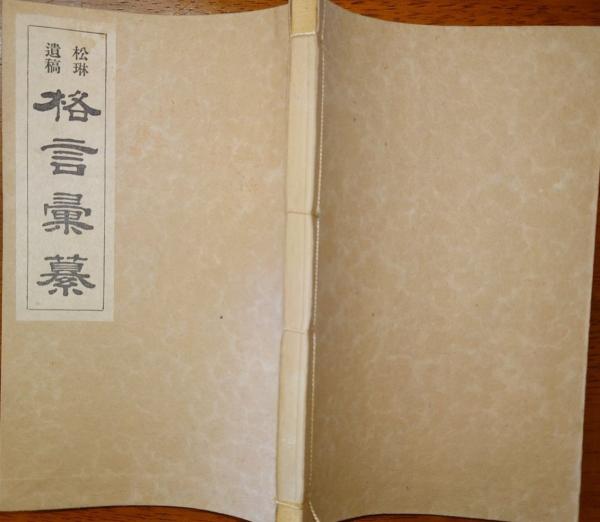 松琳
遺稿
格言彙纂